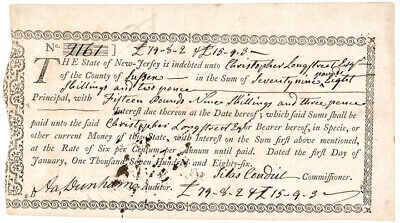 No. 1161 ] £79-8-2 & £15-9-3
THE State of New-Jersey is indebted unto Christopher Longstreet Esqr
of the County of Sussex in the Sum of Seventy nine pounds Eight
Shillings and two pence
Principal, with Fifteen Pounds Nine Shillings and three pence
Interest due thereon at the Date hereof; which said Sums shall be
paid unto the said Christopher Longstreet Esqr or Bearer hereof, in Specie, or
other current Money of this State, with Interest on the Sum first above mentioned,
at the Rate of Six per Centum per Annum until paid. Dated the first Day of
January, One Thousand Seven Hundred and Eighty-six.
Silas Condict Commissioner.
Ja. Dunham Auditor. £79-8-2 & £15-9-3